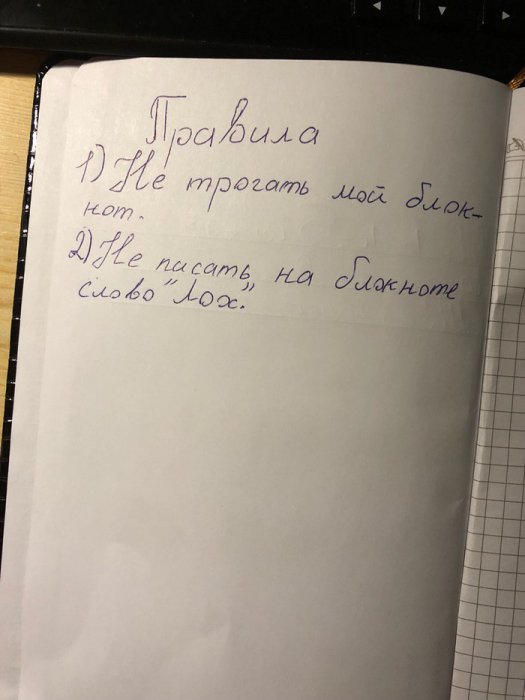 Правила
1) Не трогать мой блок-
нот.
2) Не писать на блокноте
слово "Лох".